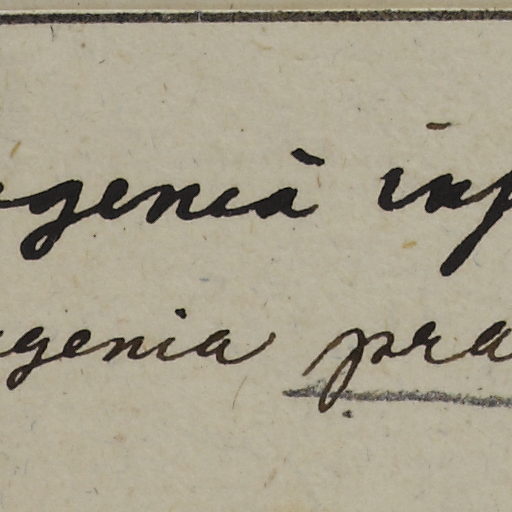 ugenia inf
ugenia pra